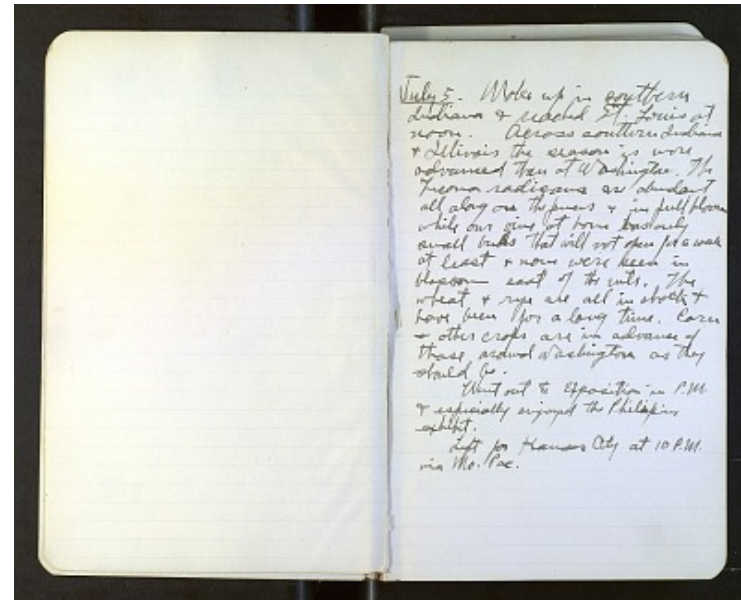 July 5. Woke up in southern
Indiana & reached St. Louis at
noon. Across southern Indiana
& Illinois the season is more
advanced than at Washington. The
Tecoma radicans are abundant
all along on the fences & in full bloom
while our vine at home has only
small buds that will not open for a week
at least & none were seen in
blossom east of the mts. The
wheat & rye are all in shock &
have been for a long time. Corn
& other crops are in advance of
those around Washington as they
should be.
Went out to Exposition in P.M.
& especially enjoyed the Philippine
exhibit.
Left for Kansas City at 10 P.M.
via Mo. Pac.